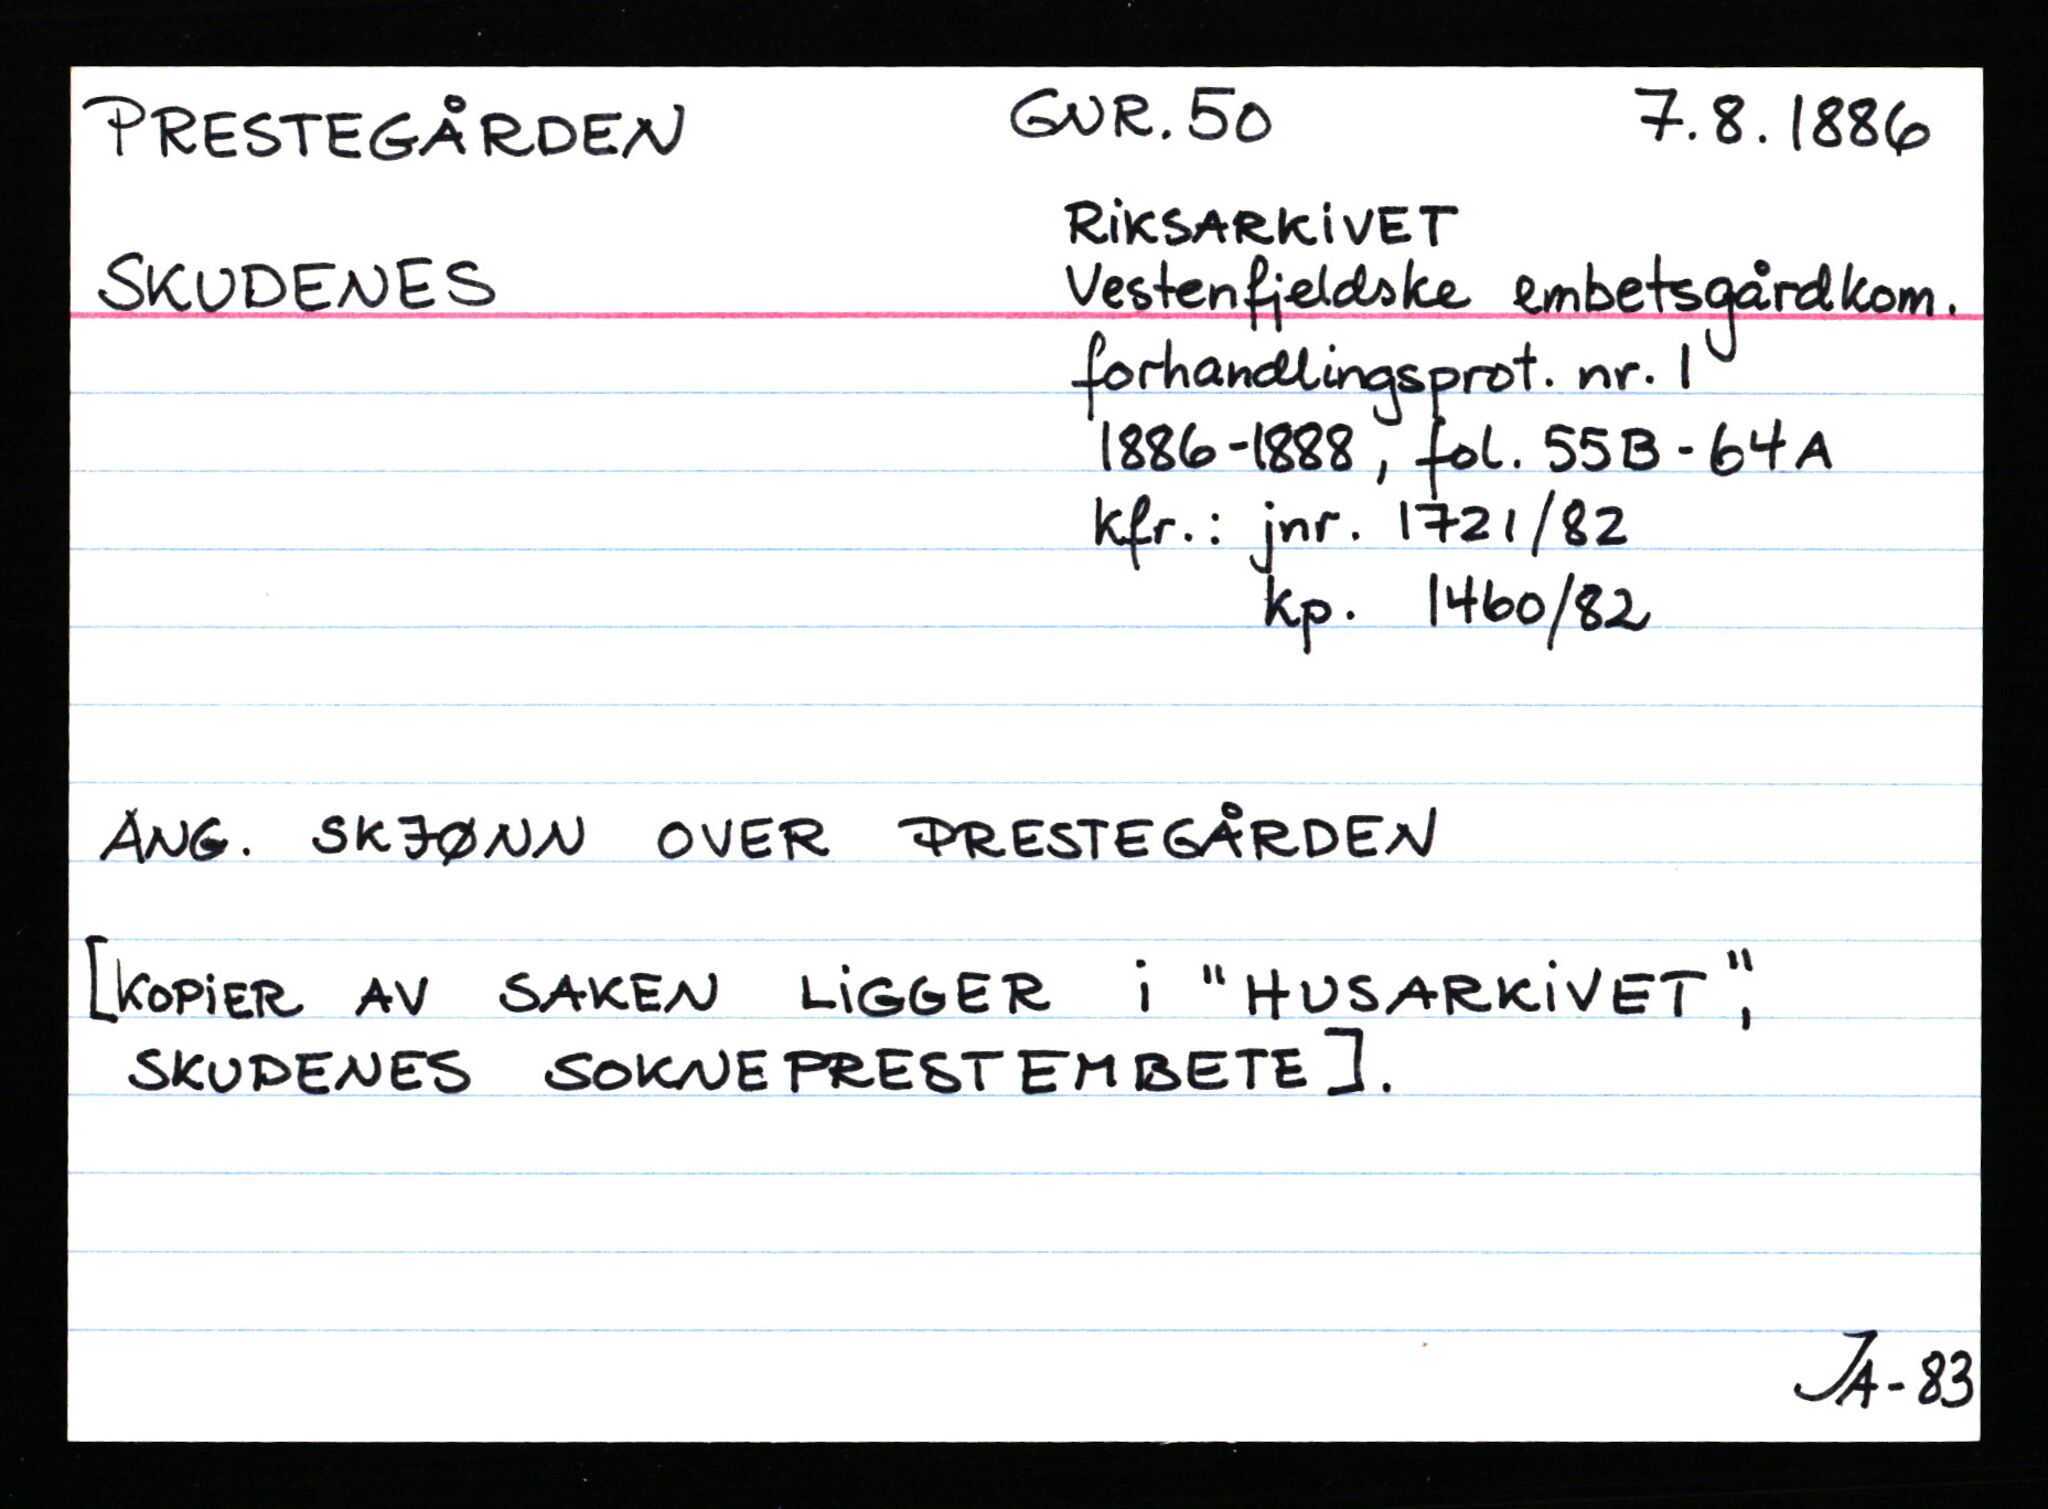 PRESTEGÅRDEN GNR. 50 7.8.1886
RIKSARKIVET
SKUDENES Vestenfjeldske embetsgårdkom.
forhandlingsprot. nr. 1
1886-1888, fol. 55B - 64A
kfr.: jnr. 1721/82
kp. 1460/82
ANG. SKJØNN OVER PRESTEGÅRDEN
[KOPIER AV SAKEN LIGGER I "HUSARKIVET",
SKUDENES SOKNEPRESTEMBETE].
JA-83